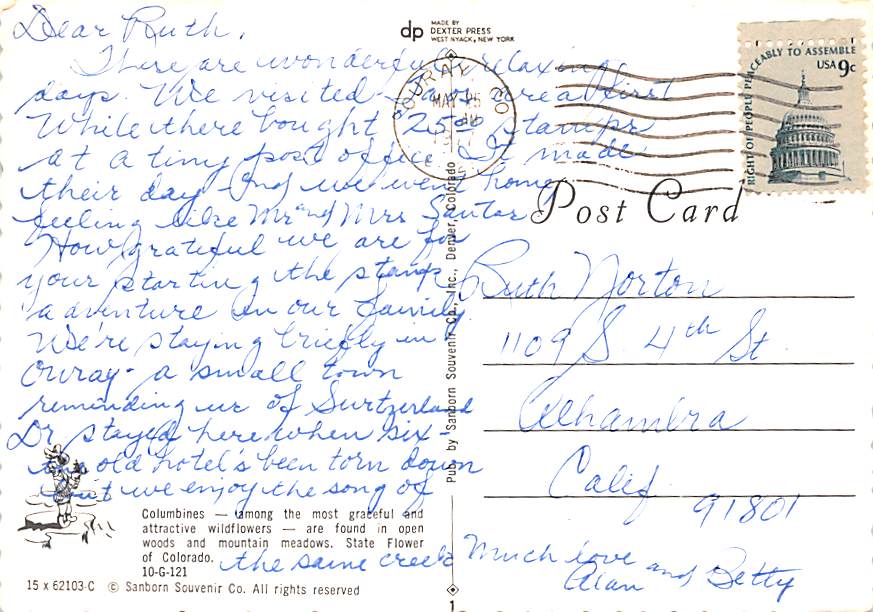 Dear Ruth,
There are wonderfully relaxing
days. We visited area first
While there bought 25 00 stamps
at a tiny post office. It made
their day and we went home
feeling like Mr and Mrs Santas
How grateful we are for
your starting the stamp
adventure in our family
We're staying briefly in
Ouray - a small town
reminding us of Switzerland
Dr stayed here when six -
the old hotel's been torn down
but we enjoy the song of
the same creek Much love
Alan and Betty
dp MADE BY
DEXTER PRESS
WEST NYACK, NEW YORK
OURAY CO
MAY 25
RIGHT OF PEOPLE PEACEABLY TO ASSEMBLE
USA 9c
Post Card
Ruth Norton
1109 S. 4th St
Alhambra
Calif
91801
Pub. by Sanborn Souvenir Co., Inc., Denver, Colorado
Columbines — among the most graceful and
attractive wildflowers — are found in open
woods and mountain meadows. State Flower
of Colorado.
10-G-121
15 x 62103-C © Sanborn Souvenir Co. All rights reserved
1